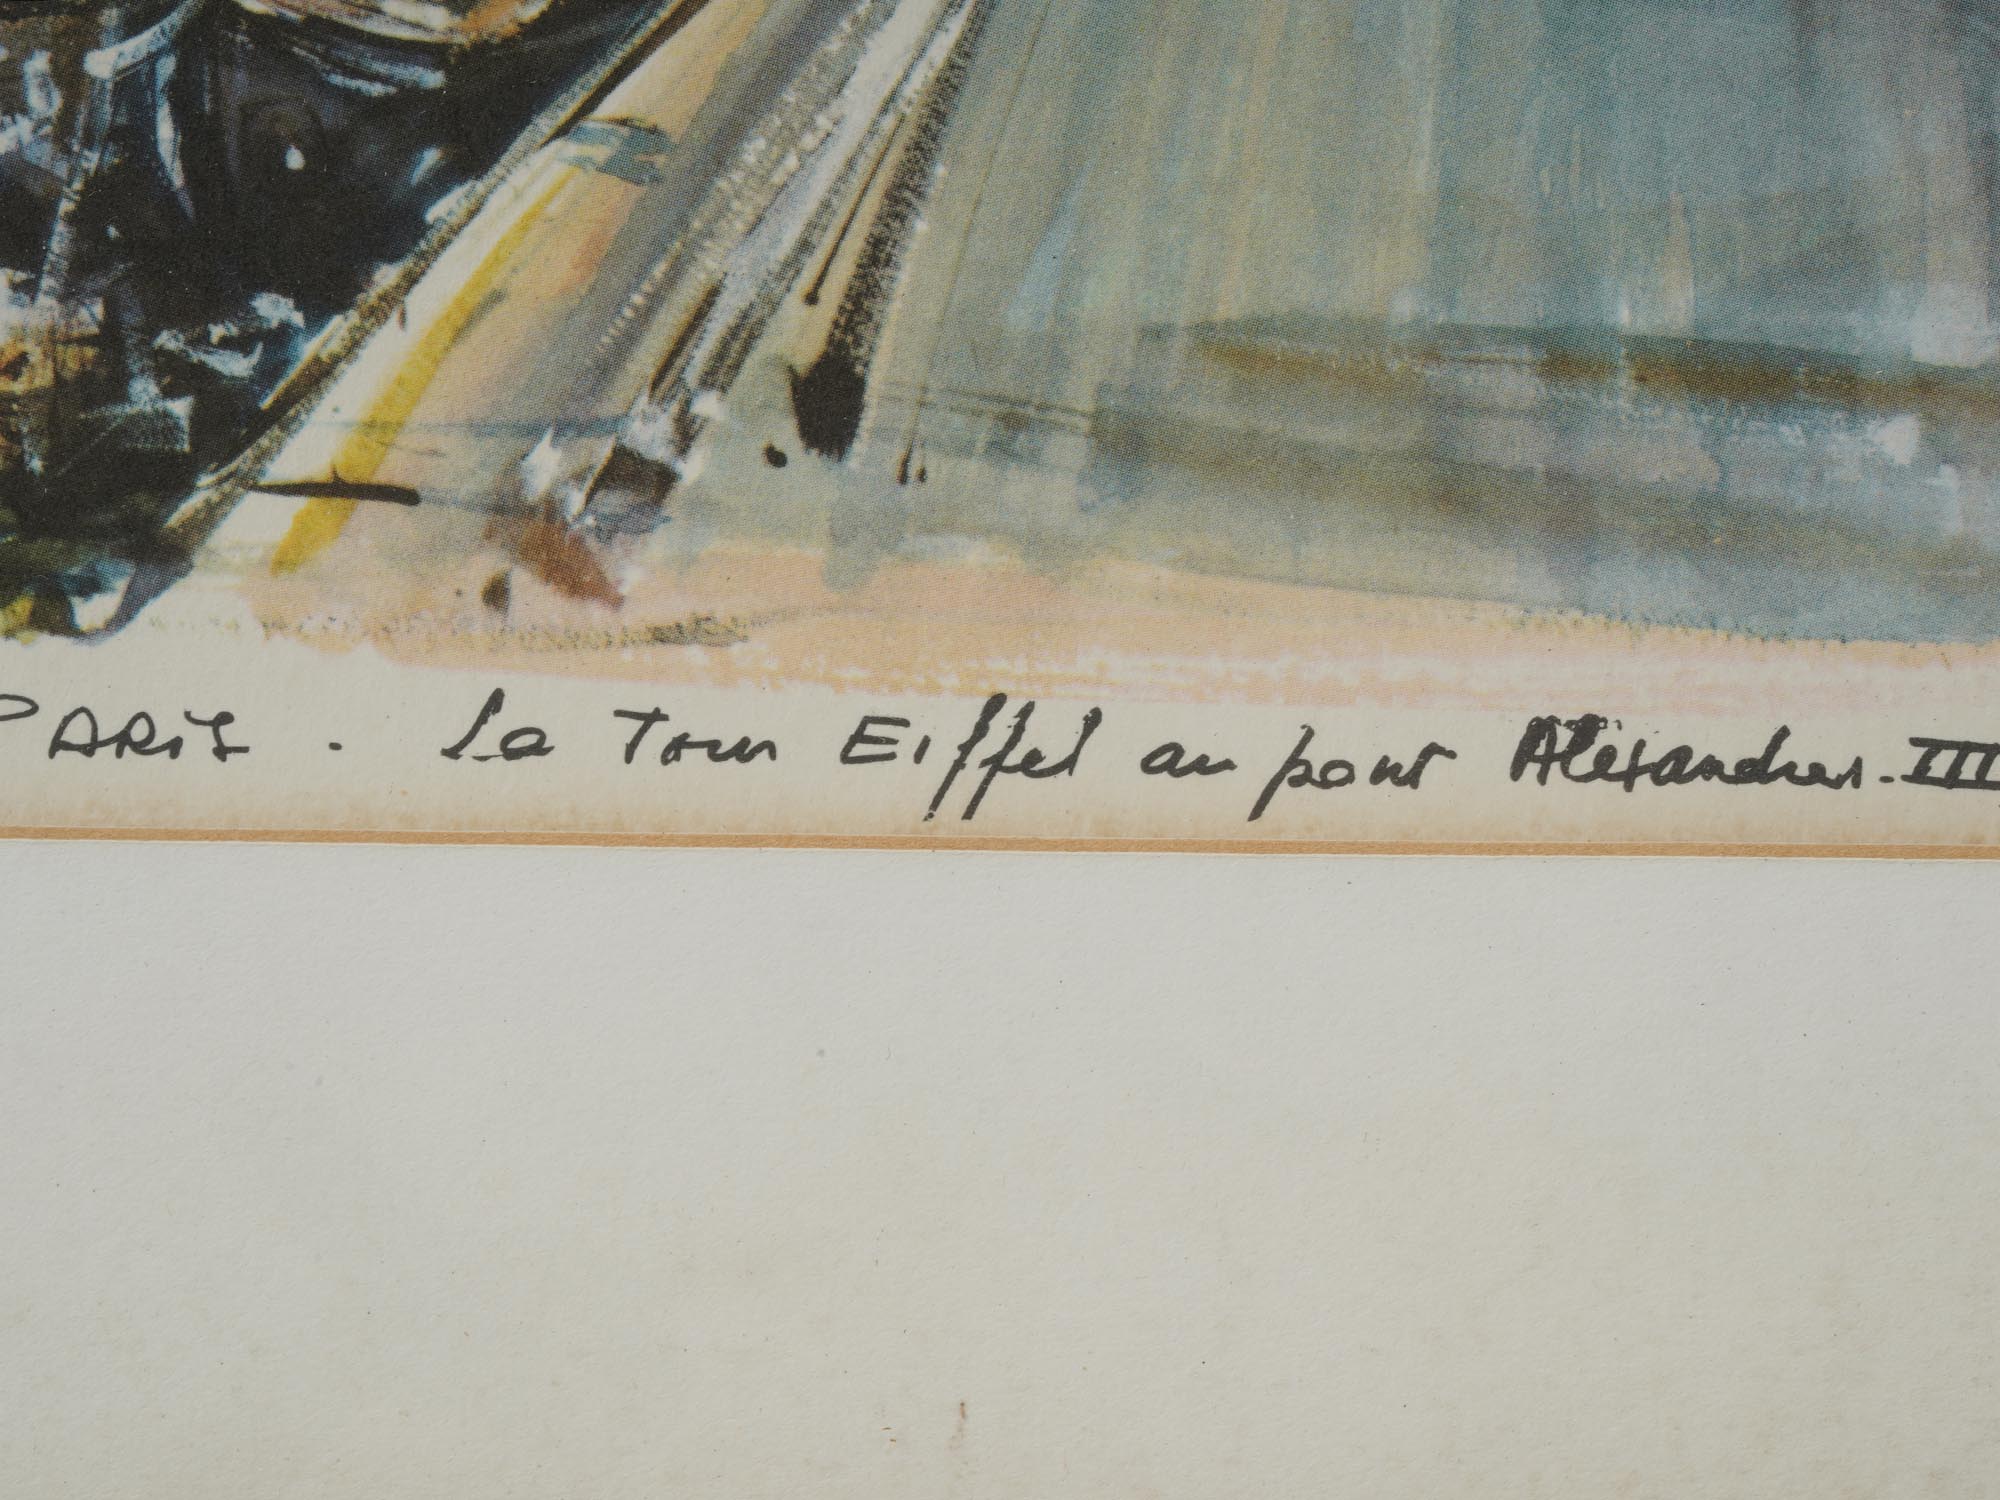 PARIS . La Tour Eiffel au pont Alexandre. III